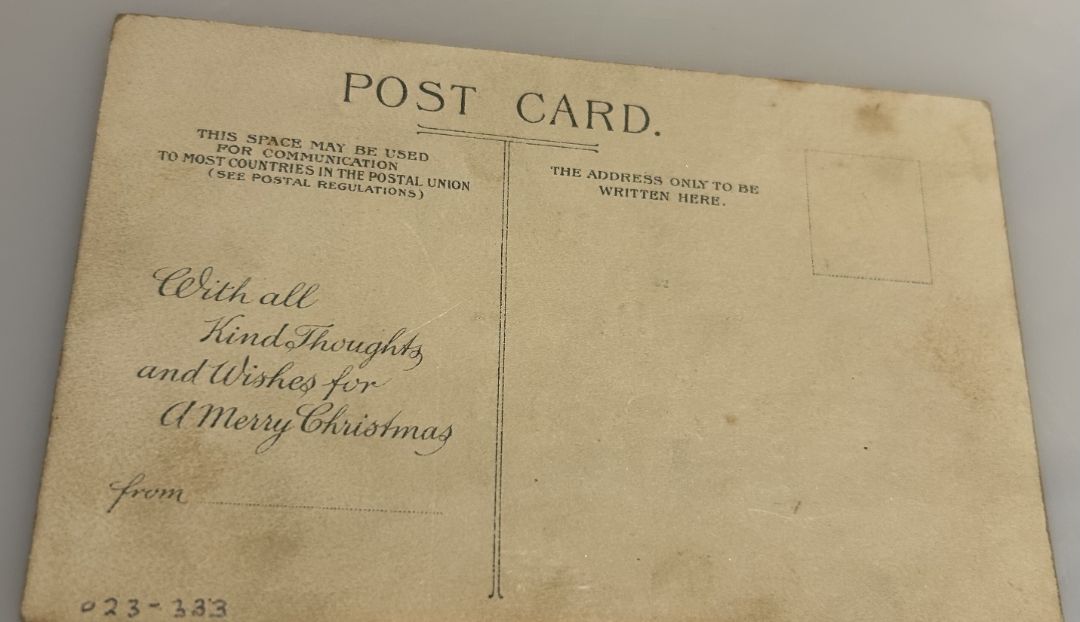 POST CARD.
THIS SPACE MAY BE USED
FOR COMMUNICATION
TO MOST COUNTRIES IN THE POSTAL UNION
(SEE POSTAL REGULATIONS)
THE ADDRESS ONLY TO BE
WRITTEN HERE.
With all
Kind Thoughts
and Wishes for
A Merry Christmas
from
023-333